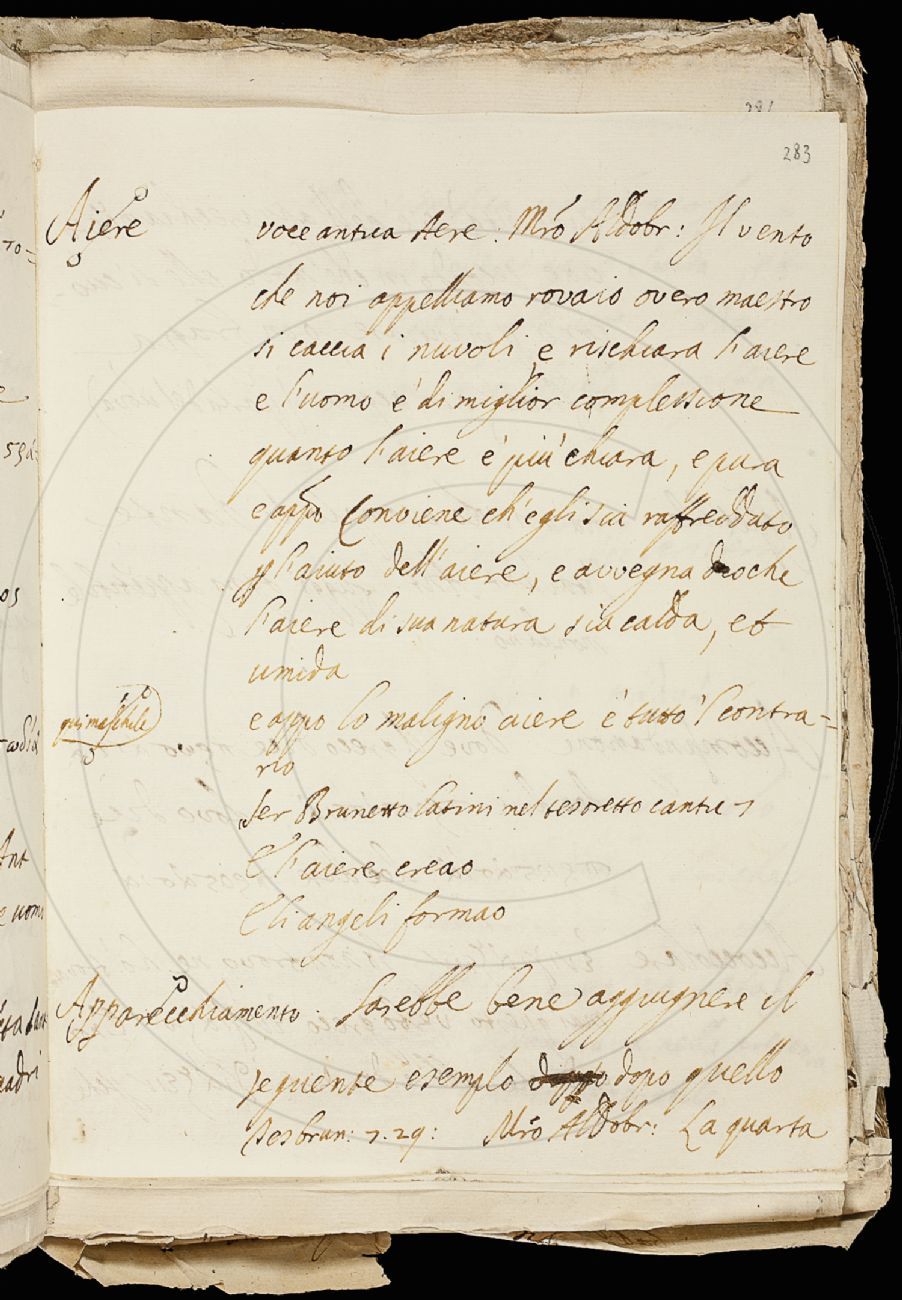 283
Aiere voce antica Aere: Mro Aldobr: Il vento
che noi appelliamo rovaio overo maestro
si caccia i nuvoli, e rischiara l'aiere
e l'uomo è di miglior complessione
quanto l'aiere è più chiara, e pura
e appo Conviene ch'egli sia raffreddato
p l'aiuto dell'aiere, e avvegna dioche
l'aiere di sua natura sia calda, et
umida
qui maschile e appo lo maligno aiere è tutto 'l contra=
rio
Ser Brunetto latini nel tesoretto
E l'aiere creao
E li angeli formao
Apparecchiamento. Sarebbe bene aggiugnere il
seguente esempio dopo quello
Tesbrun: 7.29: Mro Aldobr: La quarta